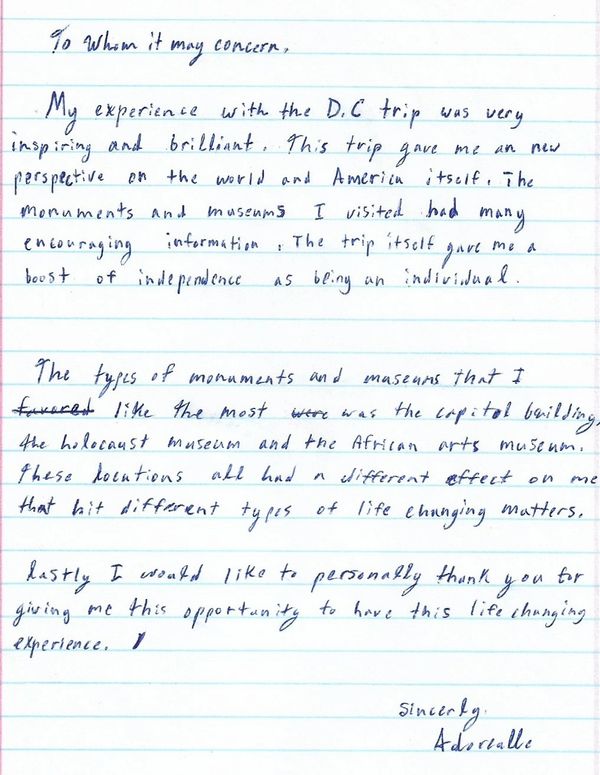 To Whom it may concern,
My experience with the D.C trip was very
inspiring and brilliant. This trip gave me an new
perspective on the world and America itself. The
monuments and museums I visited had many
encouraging information. The trip itself gave me a
boost of independence as being an individual.
The types of monuments and museums that I
favored like the most were was the capitol building,
the holocaust museum and the African arts museum.
These locations all had a different effect on me
that hit different types of life changing matters.
Lastly I would like to personally thank you for
giving me this opportunity to have this life changing
experience.
Sincerly.
Adorealle